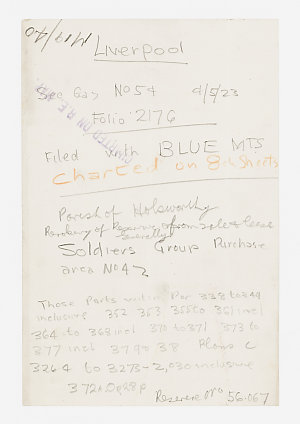 M19/40
Liverpool
See Gaz No 54 4/5/23
Folio 2176
CHARTED ON R.E. MAP
Filed with BLUE MTS
Charted on 8ch Sheets
Parish of Holsworthy
from sale & lease
generally
Soldiers Group Purchase
area No 42
Those Parts within Por 338 to 344
inclusive 352 353 355 to 361 incl
364 to 368 incl 370 to 371 373 to
377 incl 379 Plans C
3264 to 3273-2,030 inclusive
372a 0r 28p
Reserve No 56.067